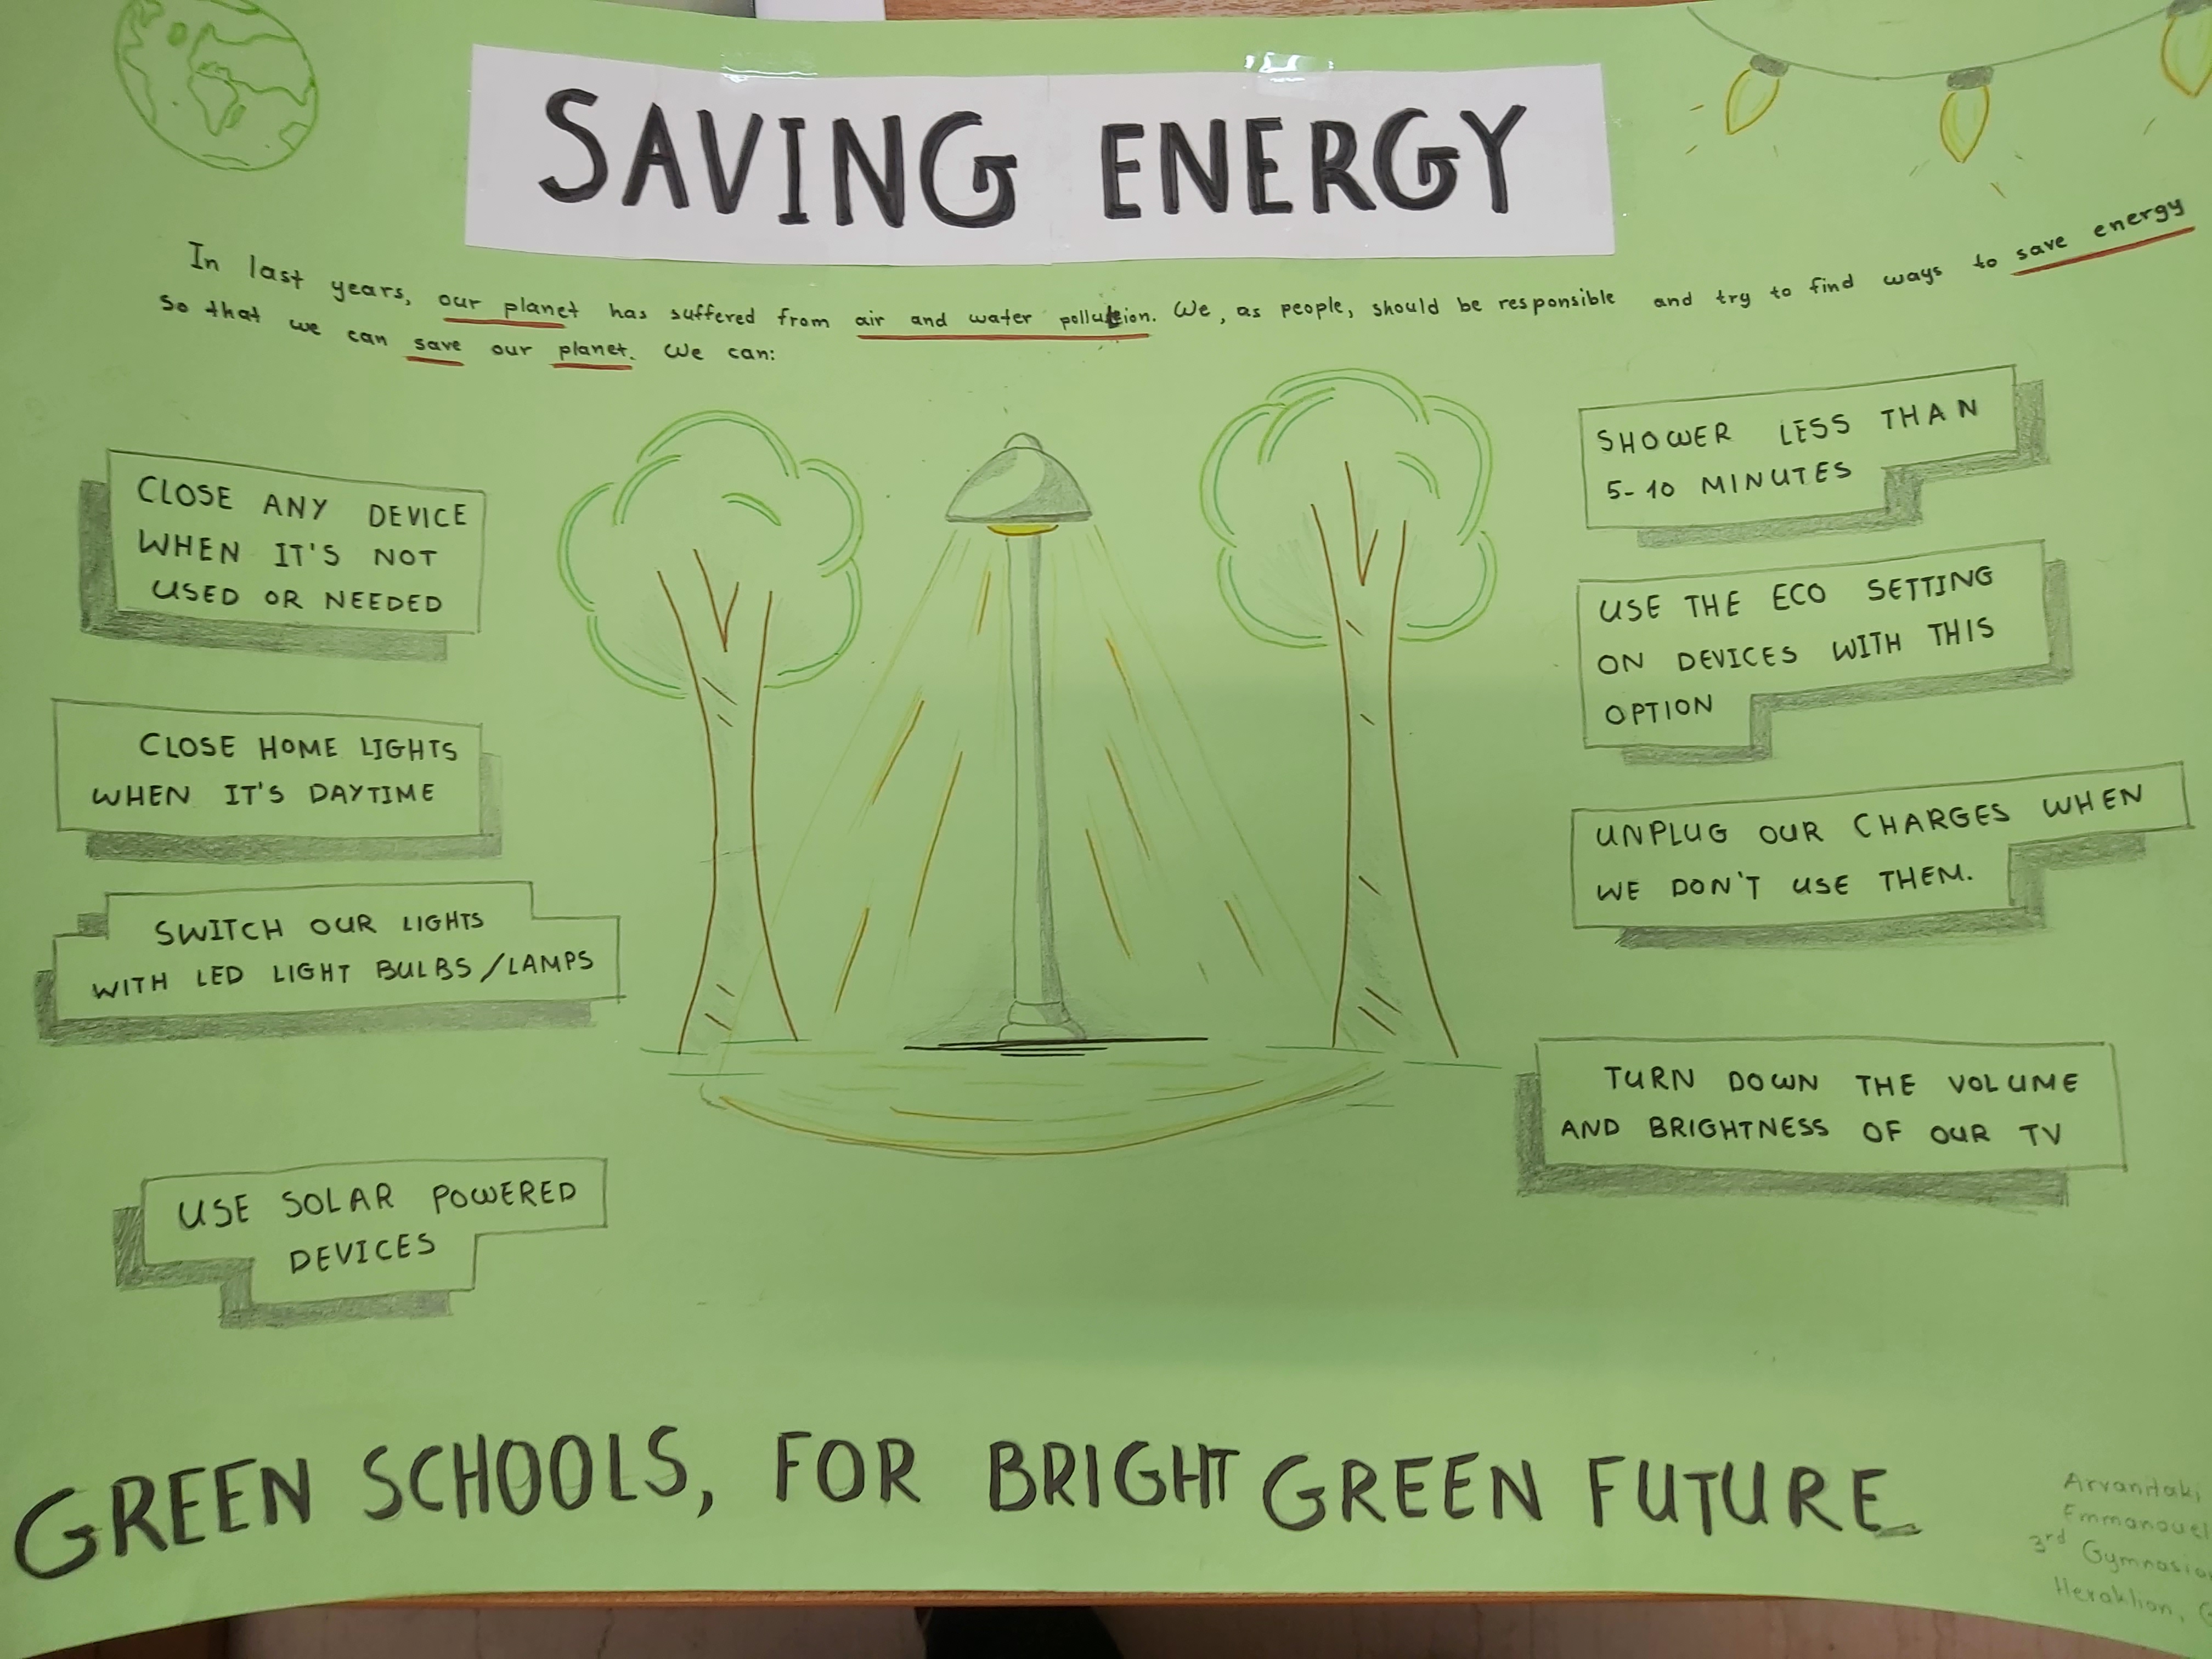 SAVING ENERGY
In last years, our planet has suffered from air and water pollution. We, as people, should be responsible and try to find ways to save energy
so that we can save our planet. We can:
CLOSE ANY DEVICE
WHEN IT'S NOT
USED OR NEEDED
CLOSE HOME LIGHTS
WHEN IT'S DAYTIME
SWITCH OUR LIGHTS
WITH LED LIGHT BULBS/LAMPS
USE SOLAR POWERED
DEVICES
SHOWER LESS THAN
5-10 MINUTES
USE THE ECO SETTING
ON DEVICES WITH THIS
OPTION
UNPLUG OUR CHARGES WHEN
WE DON'T USE THEM.
TURN DOWN THE VOLUME
AND BRIGHTNESS OF OUR TV
GREEN SCHOOLS, FOR BRIGHT GREEN FUTURE
Arvanitaki
3rd
Heraklion,